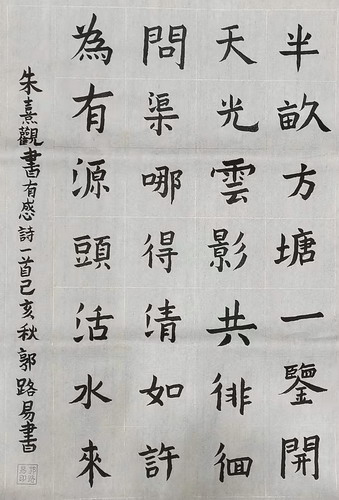 半畝方塘一鑒開
天光雲影共徘徊
問渠哪得清如許
為有源頭活水來
朱熹觀書有感詩一首己亥秋郭路易書